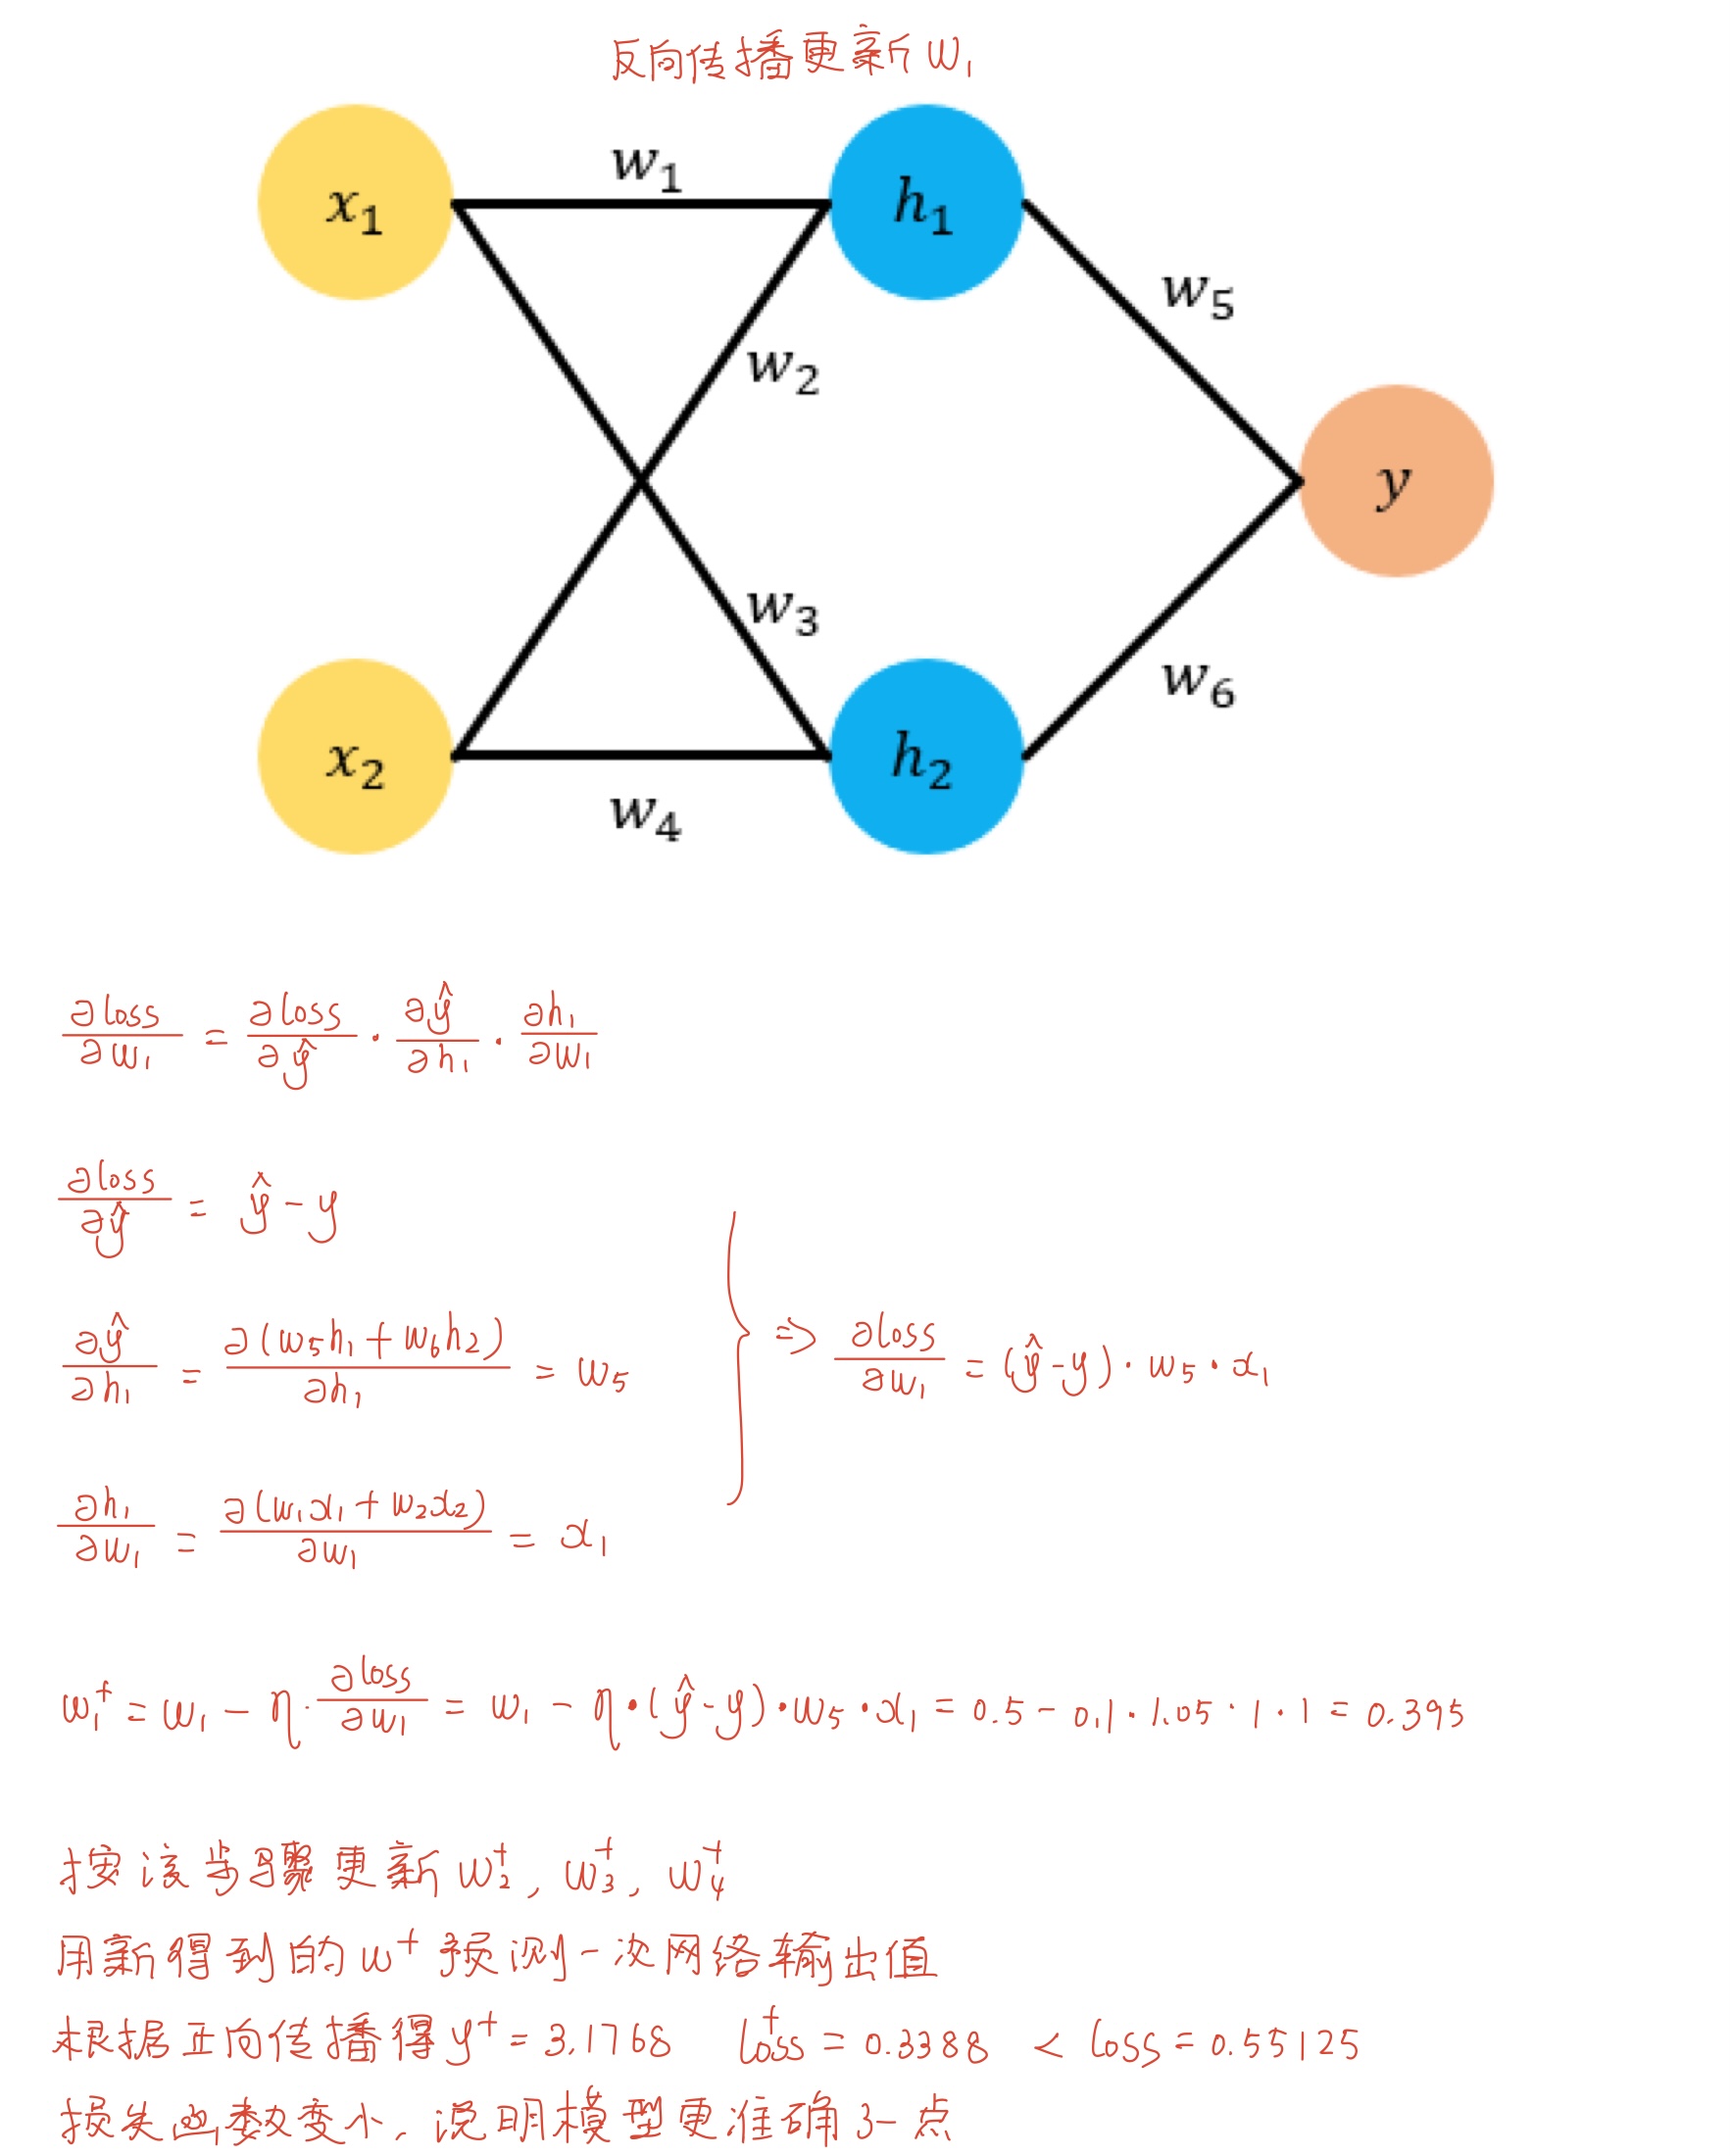 反向传播更新 w₁
x₁ w₁ h₁
w₅
w₂
y
w₃
w₆
x₂ h₂
w₄
∂loss/∂w₁ = ∂loss/∂ŷ · ∂ŷ/∂h₁ · ∂h₁/∂w₁
∂loss/∂ŷ = ŷ - y
∂ŷ/∂h₁ = ∂(w₅h₁ + w₆h₂)/∂h₁ = w₅ ⇒ ∂loss/∂w₁ = (ŷ - y) · w₅ · x₁
∂h₁/∂w₁ = ∂(w₁x₁ + w₂x₂)/∂w₁ = x₁
w₁⁺ = w₁ - η · ∂loss/∂w₁ = w₁ - η · (ŷ - y) · w₅ · x₁ = 0.5 - 0.1 · 1.05 · 1 · 1 = 0.395
按该步骤更新 w₂⁺, w₃⁺, w₄⁺
用新得到的 w⁺ 预测一次网络输出值
根据正向传播得 y⁺ = 3.1768 loss⁺ = 0.3388 < loss = 0.55125
损失函数变小、说明模型更准确了一点